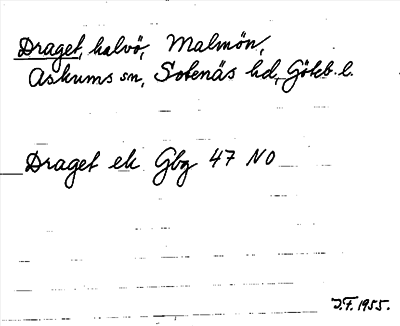 Draget, halvö, Malmön,
Askums sn, Sotenäs hd, Göteb. l.
Draget ek Gbg 47 NO
J.F. 1955.